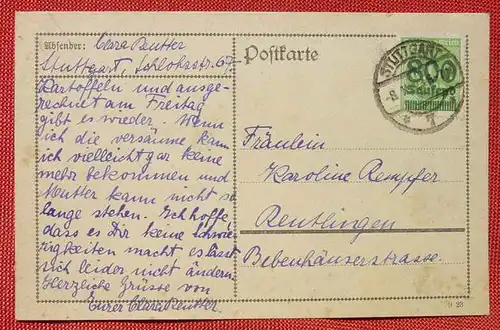 Absender: Clara Reutter
Stuttgart, Schloßstr. 67.
Kartoffeln und ausge-
rechnet am Freitag
gibt es wieder. Wenn
ich die versäume kann
ich vielleicht gar keine
mehr bekommen und
Mutter kann nicht so
lange stehen. Ich hoffe,
dass es Dir keine Schwie-
rigkeiten macht es lässt
sich leider nicht ändern.
Herzliche Grüsse von
Eurer Clara Reutter.
Postkarte
STUTTGART
800
Tausend
Fräulein
Karoline Rempfer
Reutlingen
Bebenhäuserstrasse.
9 23